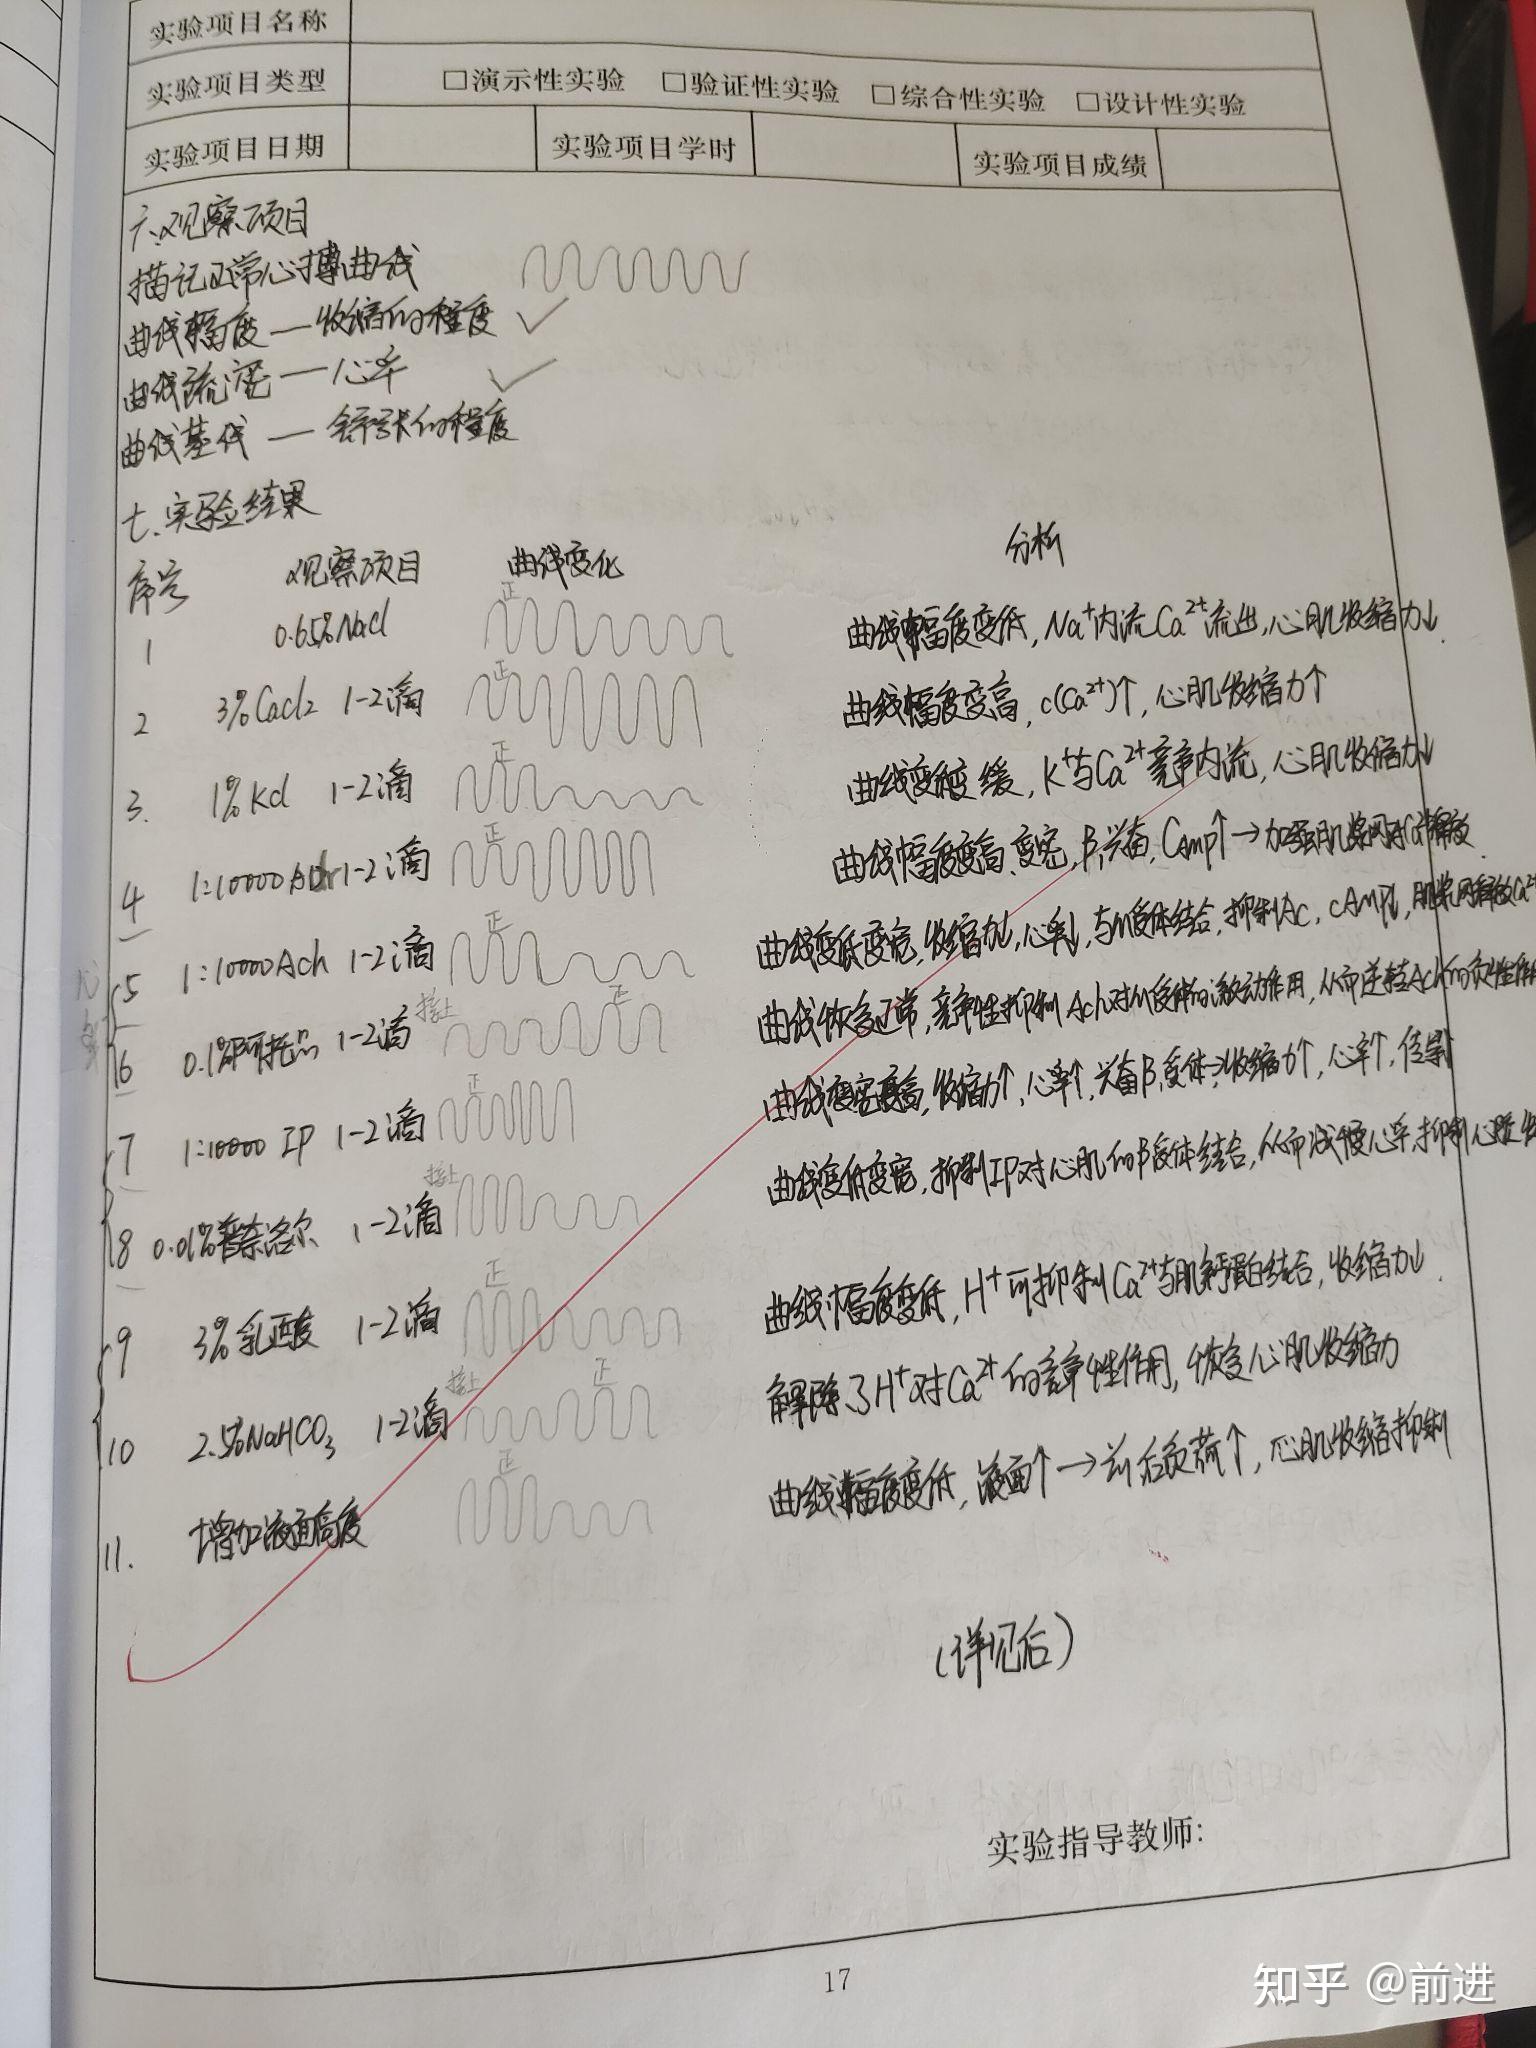 实验项目名称
实验项目类型 □演示性实验 □验证性实验 □综合性实验 □设计性实验
实验项目日期 实验项目学时 实验项目成绩
六、观察项目
描记正常心搏曲线
曲线幅度—收缩的程度
曲线疏密—心率
曲线基线—舒张的程度
七、实验结果
序号 观察项目 曲线变化 分析
1 0.65%Nacl 正 曲线幅度变低，Na⁺内流Ca²⁺流出，心肌收缩力↓.
2 3%Cacl₂ 1-2滴 正 曲线幅度变高，c(Ca²⁺)↑，心肌收缩力↑
3. 1%Kcl 1-2滴 正 曲线变缓，K⁺与Ca²⁺竞争内流，心肌收缩力↓
4 1:10000Adr 1-2滴 正 曲线幅度变高、变密，β₁兴奋，CAmp↑→加强肌浆网对Ca²⁺释放.
5 1:10000Ach 1-2滴 正 曲线变低变宽，收缩力↓，心率↓，与M受体结合，抑制Ac，cAMP↓，肌浆网释放Ca²⁺
6 0.1%阿托品 1-2滴 接上 正 曲线恢复正常，竞争性抑制Ach对M受体的激动作用，从而逆转Ach的负性作用
7 1:10000 IP 1-2滴 正 曲线变密变高，收缩力↑，心率↑，兴奋β₁受体→收缩力↑，心率↑，传导↑
8 0.01%普奈洛尔 1-2滴 接上 曲线变低变宽，抑制IP对心肌的β受体结合，从而减慢心率，抑制心脏收
9 3%乳酸 1-2滴 正 曲线幅度变低，H⁺可抑制Ca²⁺与肌钙蛋白结合，收缩力↓.
10 2.5%NaHCO₃ 1-2滴 接上 正 解除了H⁺对Ca²⁺的竞争性作用，恢复心肌收缩力
11. 增加液面高度 正 曲线幅度变低，液面↑→前后负荷↑，心肌收缩抑制
（详见后）
实验指导教师:
17
知乎 @前进